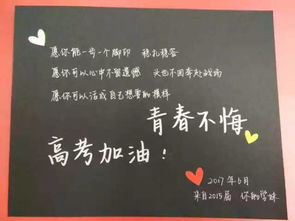 愿你能一步一个脚印 稳扎稳答
愿你可以心中不留遗憾 头也不回奔赴战场
愿你可以活成自己想要的模样
青春不悔
高考加油！
2017年6月
来自2015届 你的学妹